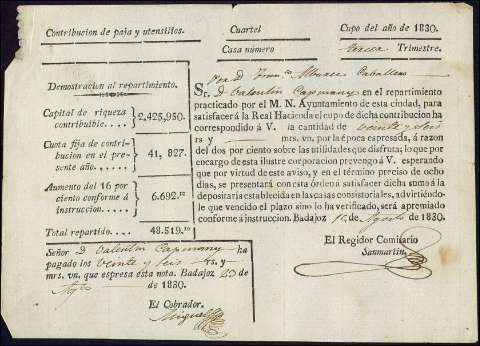 Contribucion de paja y utensilios.
Cuartel
Cupo del año de 1830.
Casa número
Tercer Trimestre.
Demostracion al repartimiento.
Capital de riqueza
contribuible. . . . 2,425,950.
Cuota fija de contri-
bucion en el pre-
sente año. . . . . 41, 827.
Aumento del 16 por
ciento conforme á
instruccion. . . . . 6.692.
Total repartido. . 48.519.
Por d. Franco. Caballero
Sr. D Valentin Capmany en el repartimiento
practicado por el M. N. Ayuntamiento de esta ciudad, para
satisfacer á la Real Hacienda el cupo de dicha contribucion ha
correspondido á V. la cantidad de veinte y seis
rs y mrs. vn. por la época espresada, á razon
del dos por ciento sobre las utilidades que disfruta; lo que por
encargo de esta ilustre corporacion prevengo á V. esperando
que por virtud de este aviso, y en el término preciso de ocho
dias, se presentará con esta órden á satisfacer dicha suma á la
depositaría establecida en las casas consistoriales, advirtiéndo-
le que vencido el plazo sino lo ha verificado, será apremiado
conforme á instruccion. Badajoz 11 de Agosto de 1830.
El Regidor Comisario
Sanmartin.
Señor D Valentin Capmany ha
pagado los veinte y seis rs. y
mrs. vn. que espresa esta nota. Badajoz 23 de
Agto de 1830.
El Cobrador.
Miguel